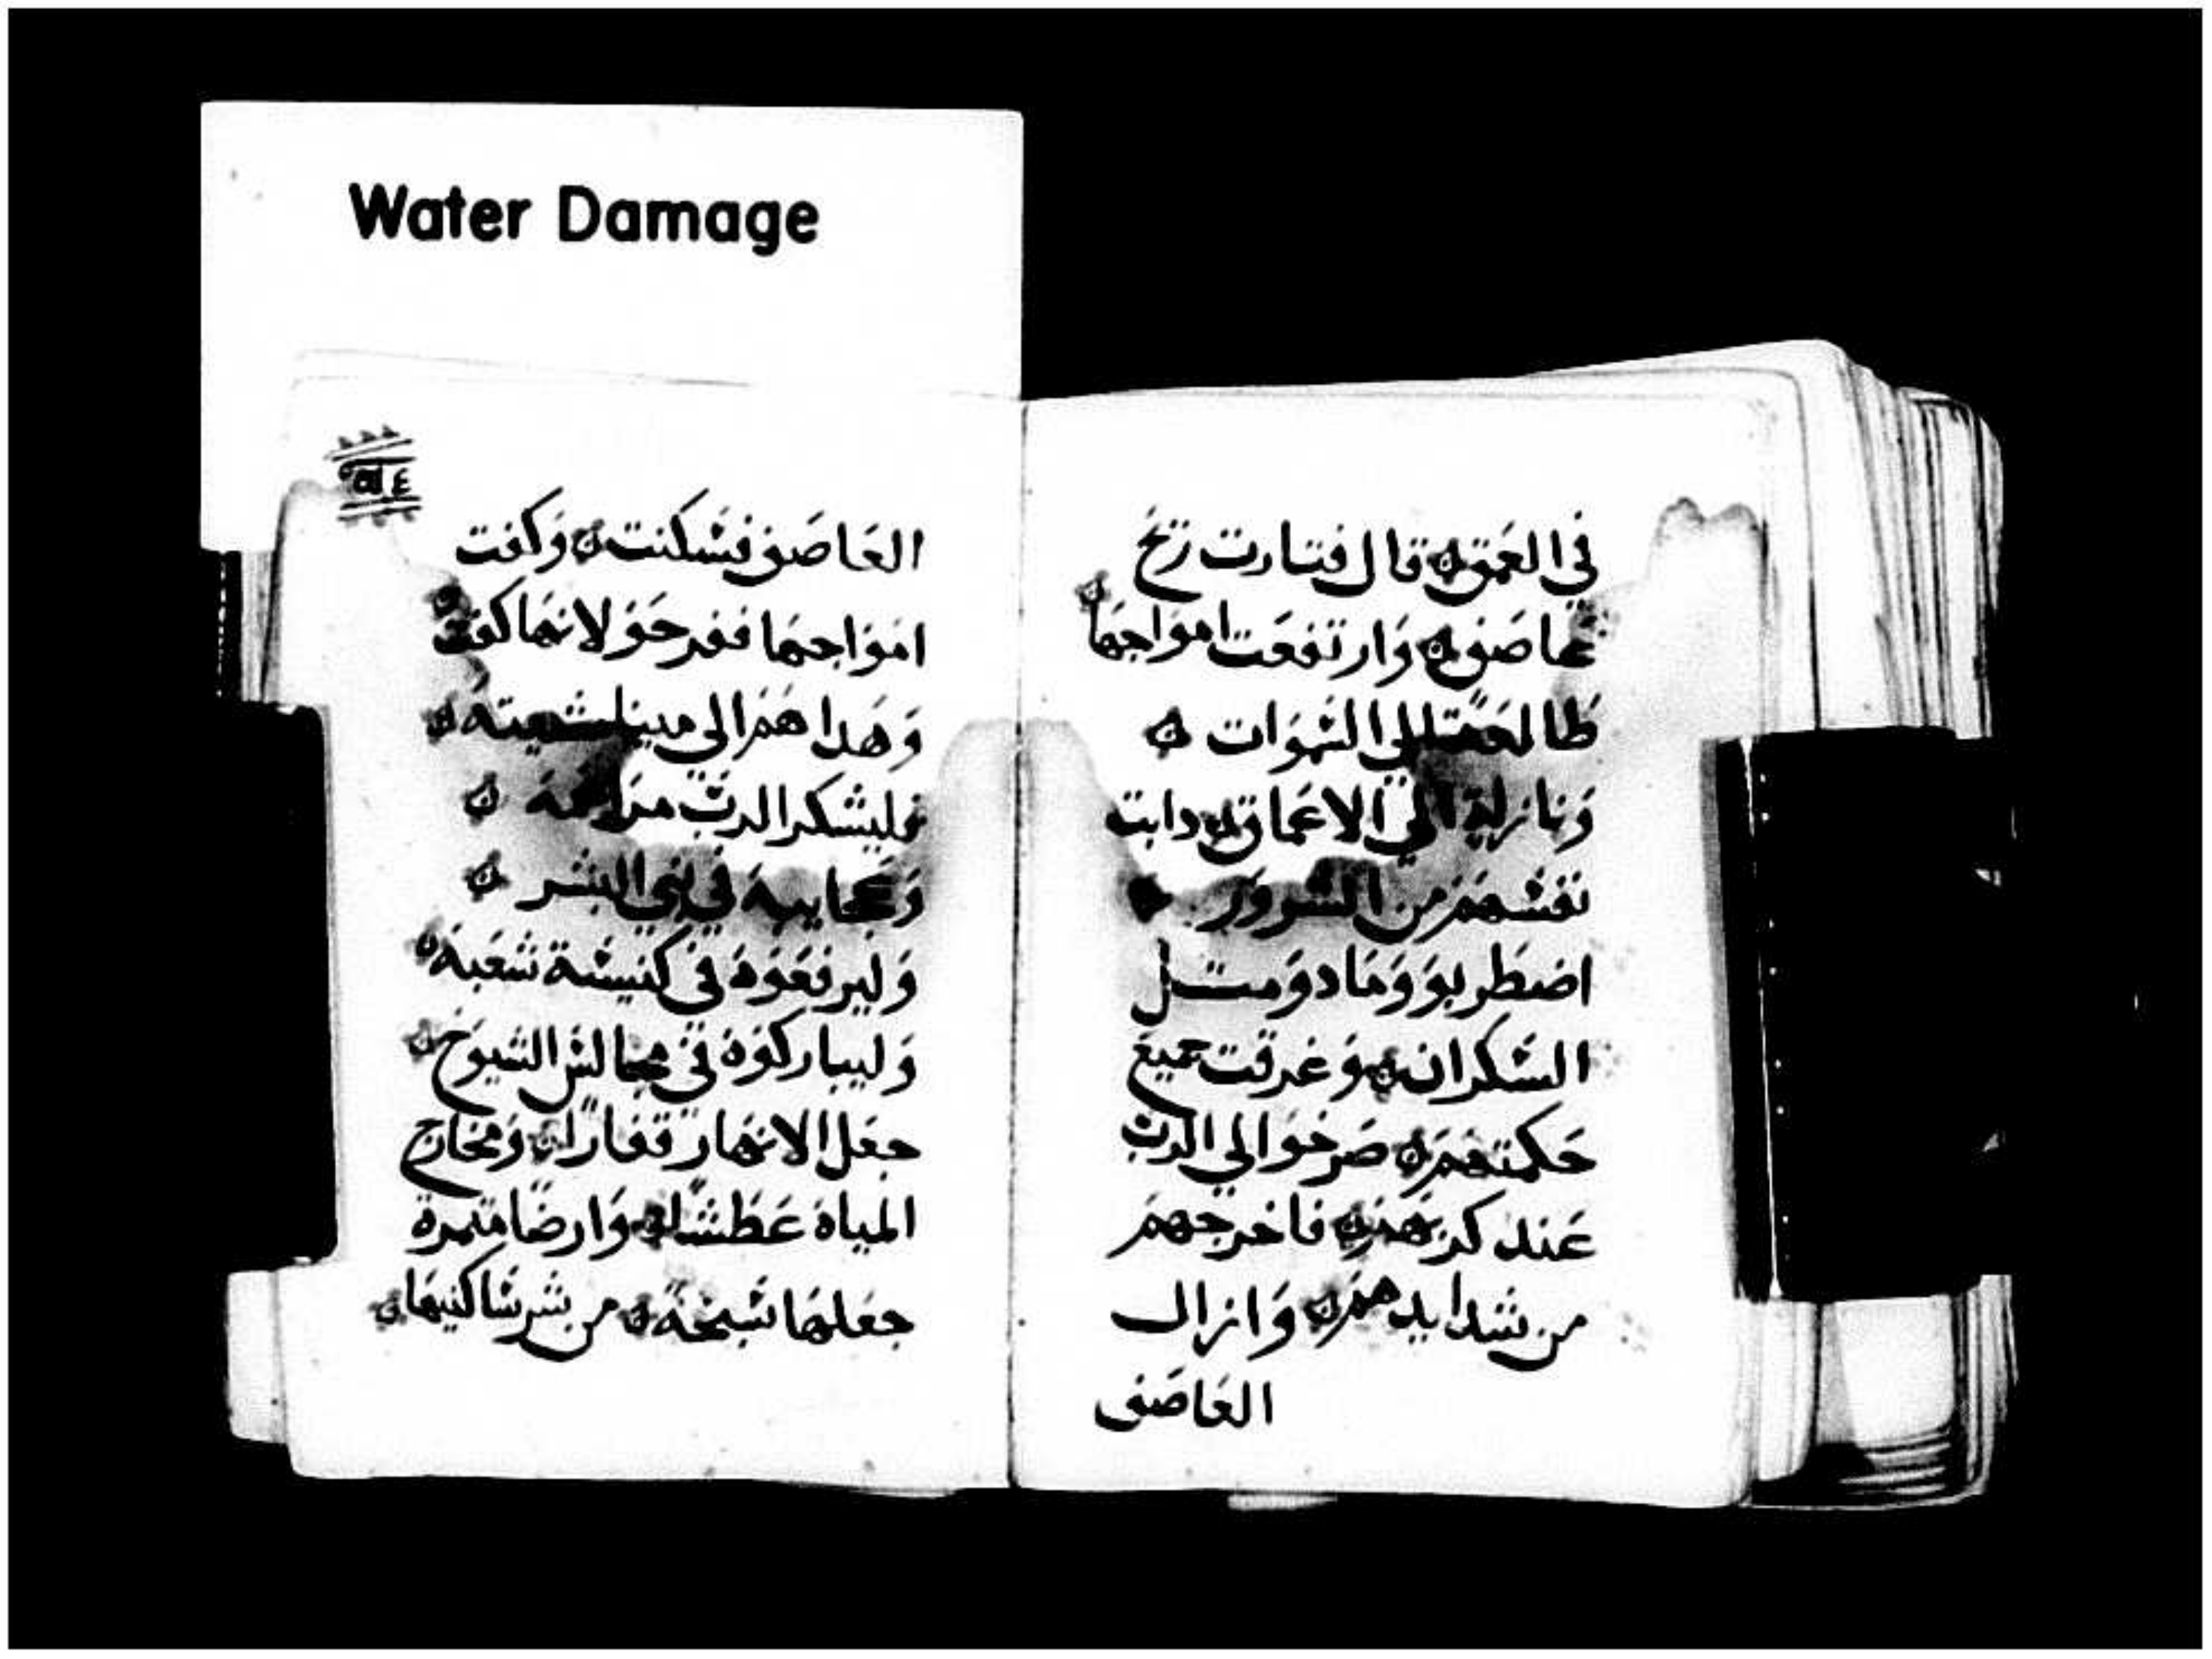 Water Damage
في العمق قال فتارت ريح
عاصف وارتفعت امواجها
طالعة الي السموات
ونازلة الي الاعماق دابت
نفسهم من الشرور
اضطربو ومادو متل
السكران وغرقت جميع
حكمتهم صرخوا الي الرب
عند كربهم فاخرجهم
من شدايدهم وازال
العاصف
العاصف فسكنت وكفت
امواجها ففرحو لانها كفت
وهداهم الي مينا
فليشكر الرب
وعجايبه في بني البشر
وليرفعوه في كنيسة شعبه
وليباركوه في مجالس الشيوخ
جعل الانهار قفارا ومخارج
المياه عطشا وارضا متمرة
جعلها سبخة من شر ساكنيها